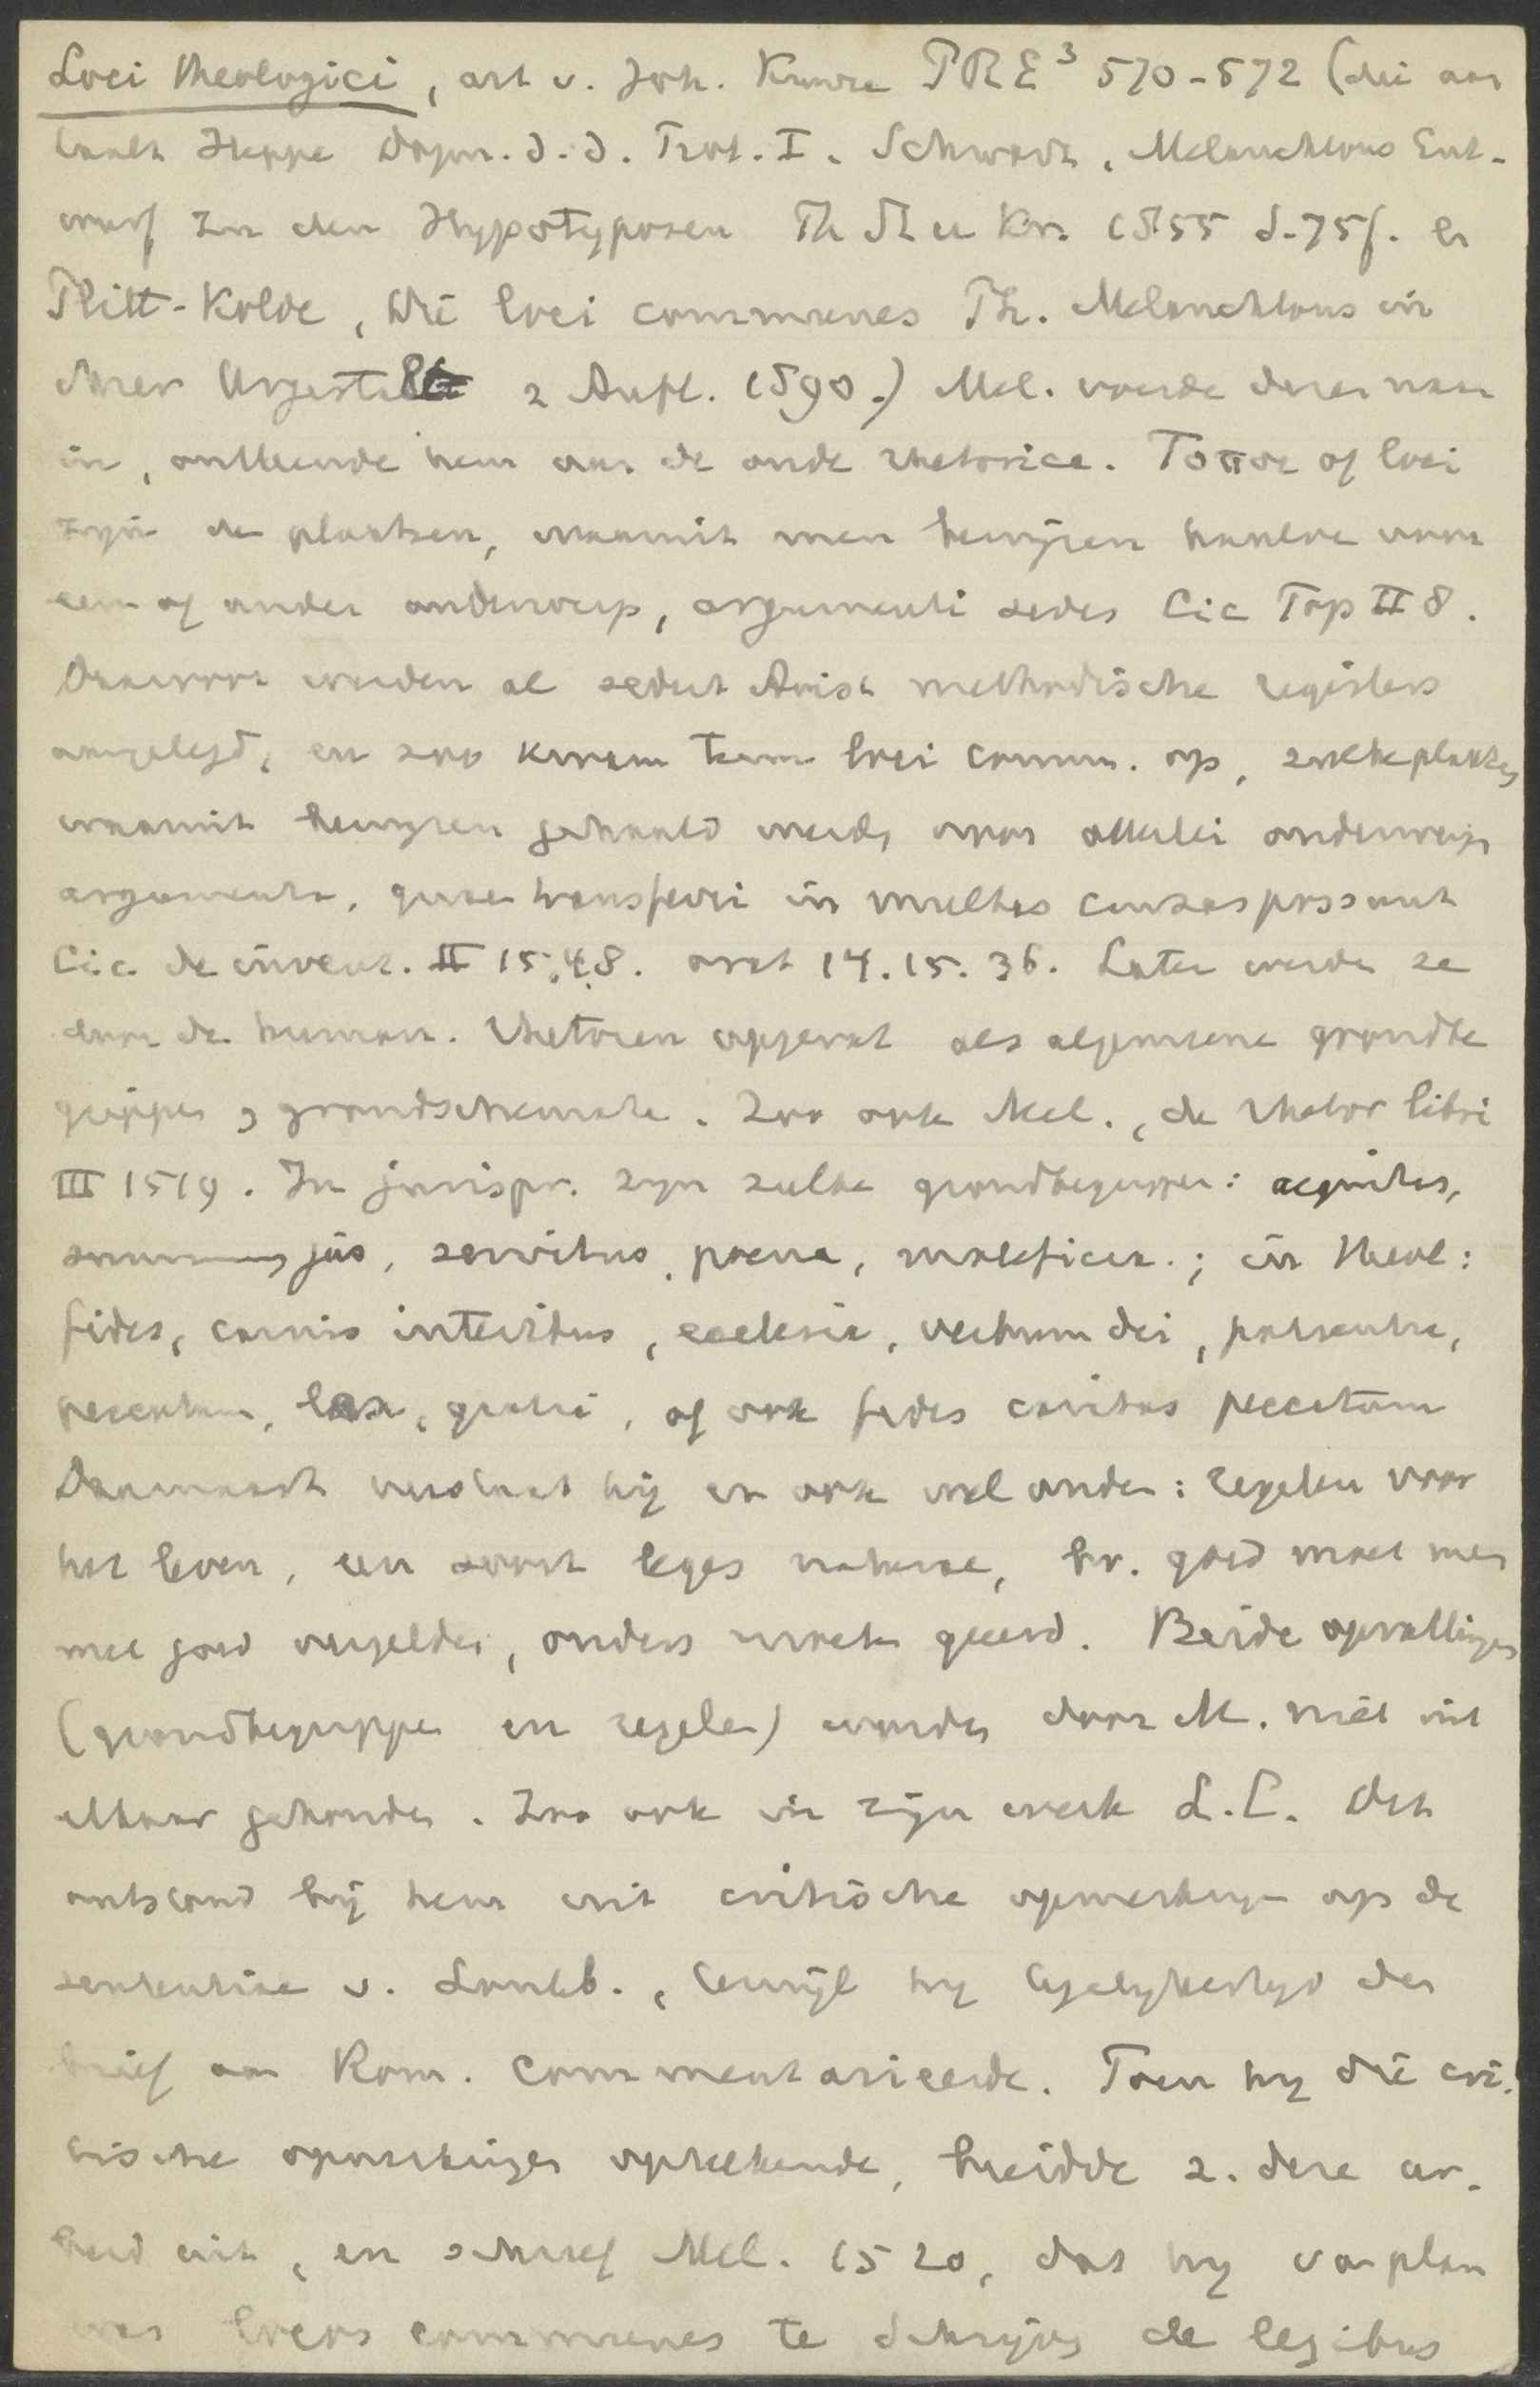 Loci theologici, art v. Joh. Kunze PRE³ 570-572 (die aan
haalt Heppe Dogm. d. d. Prot. I. Schwarz, Melanchtons Ent-
wurf zu den Hypotyposen Th St u Kr. 1855 S. 75f. en
Plitt-Kolde, Die loci communes Ph. Melanchtons in
ihrer Urgestalt 2 Aufl. 1890.) Mel. voerde deze naam
in, ontleende hem aan de oude rhetorica. Τοποι of loci
zijn de plaatsen, waaruit men bewijzen haalde voor
een of ander onderwerp, argumenti sedes Cic Top II 8.
Daarvoor werden al sedert Arist methodische registers
aangelegd, en zoo kwam term loci comm. op, zulke plaatsen
waaruit bewijzen gehaald werden voor allerlei onderwerpen
argumenta, quae transferri in multas causas possunt
Cic. de invent. II 15,48. orat 14.15.36. Later werden ze
door de human. rhetoren opgevat als algemeene grondbe
grippen, grondschemata. Zoo ook Mel., de rhetor libri
III 1519. In jurispr. zijn zulke grondbegrippen: aequitas,
summum jus, servitus, poena, maleficia.; in theol:
fides, carnis interitus, ecclesia, verbum dei, patientia,
peccatum, lex, gratia, of ook fides caritas peccatum
Daarnaast verstaat hij er ook wel onder: regelen voor
het leven, een soort leges naturae, bv. goed moet men
met goed vergelden, onders wraek geeerd. Beide opvattingen
(grondbegrippen en regelen) worden door M. niet uit
elkaar gehouden. Zoo ook in zijn werk L.C. Dit
ontstond bij hem uit critische opmerkingen op de
sententiae v. Lomb., terwijl hij tegelijkertijd den
brief aan Rom. commentarieerde. Toen hij die cri-
tische opmerkingen opteekende, breidde z. deze ar-
beid uit, en schreef Mel. 1520, dat hij van plan
was locos communes te schrijven de legibus